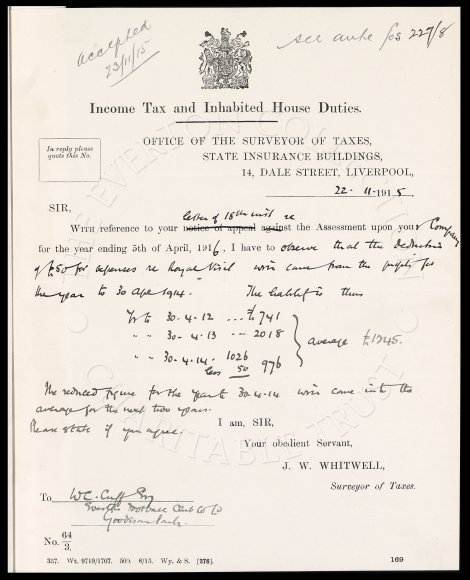 accepted
23/11/15
see ante fos 227/8
Income Tax and Inhabited House Duties.
In reply please
quote this No.
OFFICE OF THE SURVEYOR OF TAXES,
STATE INSURANCE BUILDINGS,
14, DALE STREET, LIVERPOOL,
22-11-1915
SIR,
letter of 18th inst re
WITH reference to your notice of appeal against the Assessment upon your Company
for the year ending 5th of April, 1916, I have to observe that the deduction
of £50 for expenses re Royal Visit will come from the profits for
the year to 30 Apl 1914. The liability is thus
Yr to 30.4.12 ... £741
" " 30.4.13 ... 2018
" " 30.4.14. 1026
less 50 976
average £1245.
The reduced figure for the year to 30.4.14 will come into the
average for the next two years.
Please state if you agree.
I am, SIR,
Your obedient Servant,
J. W. WHITWELL,
Surveyor of Taxes.
To W.C. Cuff Esq
Everton Football Club Co Ld
Goodison Park.
No. 64/3.
357. Wt. 9719/1707. 500. 6/15. Wy. & S. [276].
169
THE EVERTON COLLECTION
CHARITABLE TRUST